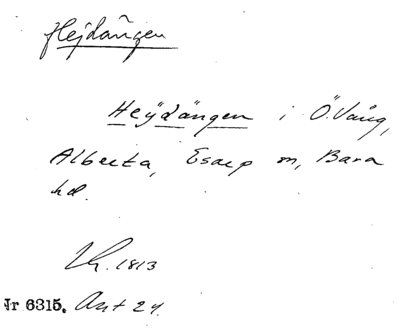 Hejdängen
Heÿdängen i Ö. Vång,
Alberta, Esarp m, Bara
hd.
Lh. 1813
Nr 6315. Ant 24.